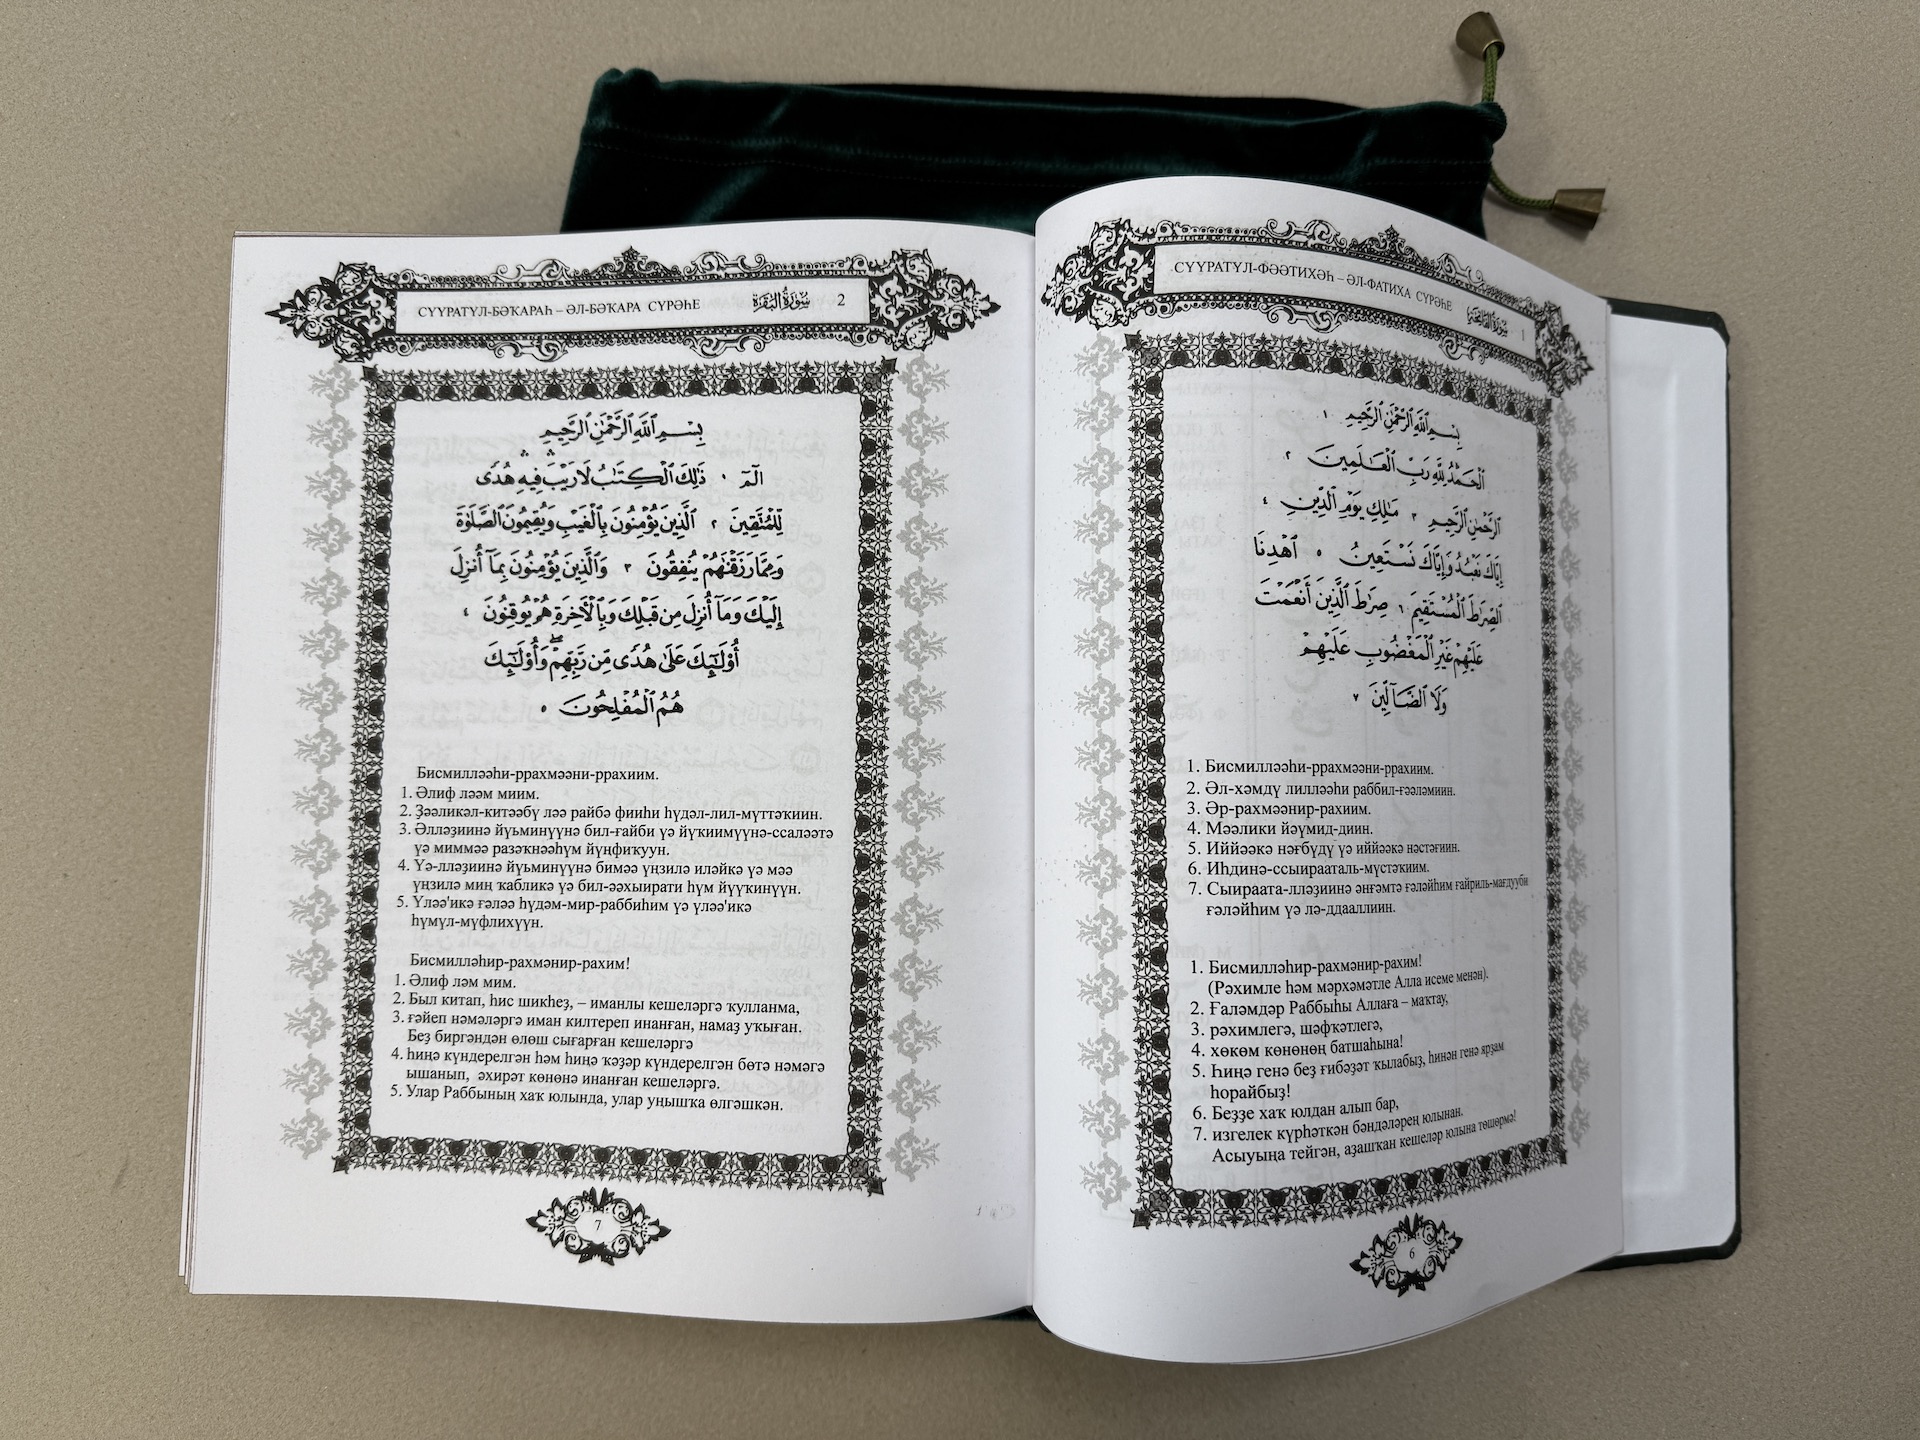 СҮҮРАТҮЛ-ФӘӘТИХӘҺ – ӘЛ-ФАТИХА СҮРӘҺЕ سُورَةُ الْفَاتِحَةِ 1
بِسْمِ ٱللَّهِ ٱلرَّحْمَٰنِ ٱلرَّحِيمِ ١
ٱلْحَمْدُ لِلَّهِ رَبِّ ٱلْعَٰلَمِينَ ٢
ٱلرَّحْمَٰنِ ٱلرَّحِيمِ ٣ مَٰلِكِ يَوْمِ ٱلدِّينِ ٤
إِيَّاكَ نَعْبُدُ وَإِيَّاكَ نَسْتَعِينُ ٥ ٱهْدِنَا
ٱلصِّرَٰطَ ٱلْمُسْتَقِيمَ ٦ صِرَٰطَ ٱلَّذِينَ أَنْعَمْتَ
عَلَيْهِمْ غَيْرِ ٱلْمَغْضُوبِ عَلَيْهِمْ
وَلَا ٱلضَّآلِّينَ ٧
1. Бисмилләәһи-ррахмәәни-ррахиим.
2. Әл-хәмдү лилләәһи раббил-ғәәләмиин.
3. Әр-рахмәәнир-рахиим.
4. Мәәлики йәүмид-диин.
5. Иййәәкә нәғбүдү үә иййәәкә нәстәғиин.
6. Иһдинә-ссыырааталь-мүстәҡиим.
7. Сыыраата-лләҙиинә әнғәмтә ғәләйһим ғайриль-мағдууби
ғәләйһим үә лә-ддааллиин.
1. Бисмилләһир-рахмәнир-рахим!
(Рәхимле һәм мәрхәмәтле Алла исеме менән).
2. Ғаләмдәр Раббыһы Аллаға – маҡтау,
3. рәхимлегә, шәфҡәтлегә,
4. хөкөм көнөнөң батшаһына!
5. Һиңә генә беҙ ғибәҙәт ҡылабыҙ, һинән генә ярҙам
һорайбыҙ!
6. Беҙҙе хаҡ юлдан алып бар,
7. изгелек күрһәткән бәндәләрең юлынан.
Асыуыңа тейгән, аҙашҡан кешеләр юлына төшөрмә!
6
СҮҮРАТҮЛ-БӘҠАРАҺ – ӘЛ-БӘҠАРА СҮРӘҺЕ سُورَةُ الْبَقَرَةِ 2
بِسْمِ ٱللَّهِ ٱلرَّحْمَٰنِ ٱلرَّحِيمِ
الٓمٓ ١ ذَٰلِكَ ٱلْكِتَٰبُ لَا رَيْبَ ۛ فِيهِ ۛ هُدًى
لِّلْمُتَّقِينَ ٢ ٱلَّذِينَ يُؤْمِنُونَ بِٱلْغَيْبِ وَيُقِيمُونَ ٱلصَّلَوٰةَ
وَمِمَّا رَزَقْنَٰهُمْ يُنفِقُونَ ٣ وَٱلَّذِينَ يُؤْمِنُونَ بِمَآ أُنزِلَ
إِلَيْكَ وَمَآ أُنزِلَ مِن قَبْلِكَ وَبِٱلْأَخِرَةِ هُمْ يُوقِنُونَ ٤
أُو۟لَٰٓئِكَ عَلَىٰ هُدًى مِّن رَّبِّهِمْ ۖ وَأُو۟لَٰٓئِكَ
هُمُ ٱلْمُفْلِحُونَ ٥
Бисмилләәһи-ррахмәәни-ррахиим.
1. Әлиф ләәм миим.
2. Ҙәәликәл-китәәбү ләә райбә фииһи һүдәл-лил-мүттәҡиин.
3. Әлләҙиинә йүьминүүнә бил-ғайби үә йүҡиимүүнә-ссаләәтә
үә миммәә разәҡнәәһүм йүңфиҡуун.
4. Үә-лләҙиинә йүьминүүнә бимәә үңзилә иләйкә үә мәә
үңзилә миң ҡабликә үә бил-әәхыирати һүм йүүҡинүүн.
5. Үләә'икә ғәләә һүдәм-мир-раббиһим үә үләә'икә
һүмүл-мүфлихүүн.
Бисмилләһир-рахмәнир-рахим!
1. Әлиф ләм мим.
2. Был китап, һис шикһеҙ, – иманлы кешеләргә ҡулланма,
3. ғәйеп нәмәләргә иман килтереп инанған, намаҙ уҡыған.
Беҙ биргәндән өлөш сығарған кешеләргә
4. һиңә күндерелгән һәм һиңә ҡәҙәр күндерелгән бөтә нәмәгә
ышанып, әхирәт көнөнә инанған кешеләргә.
5. Улар Раббының хаҡ юлында, улар уңышҡа өлгәшкән.
7